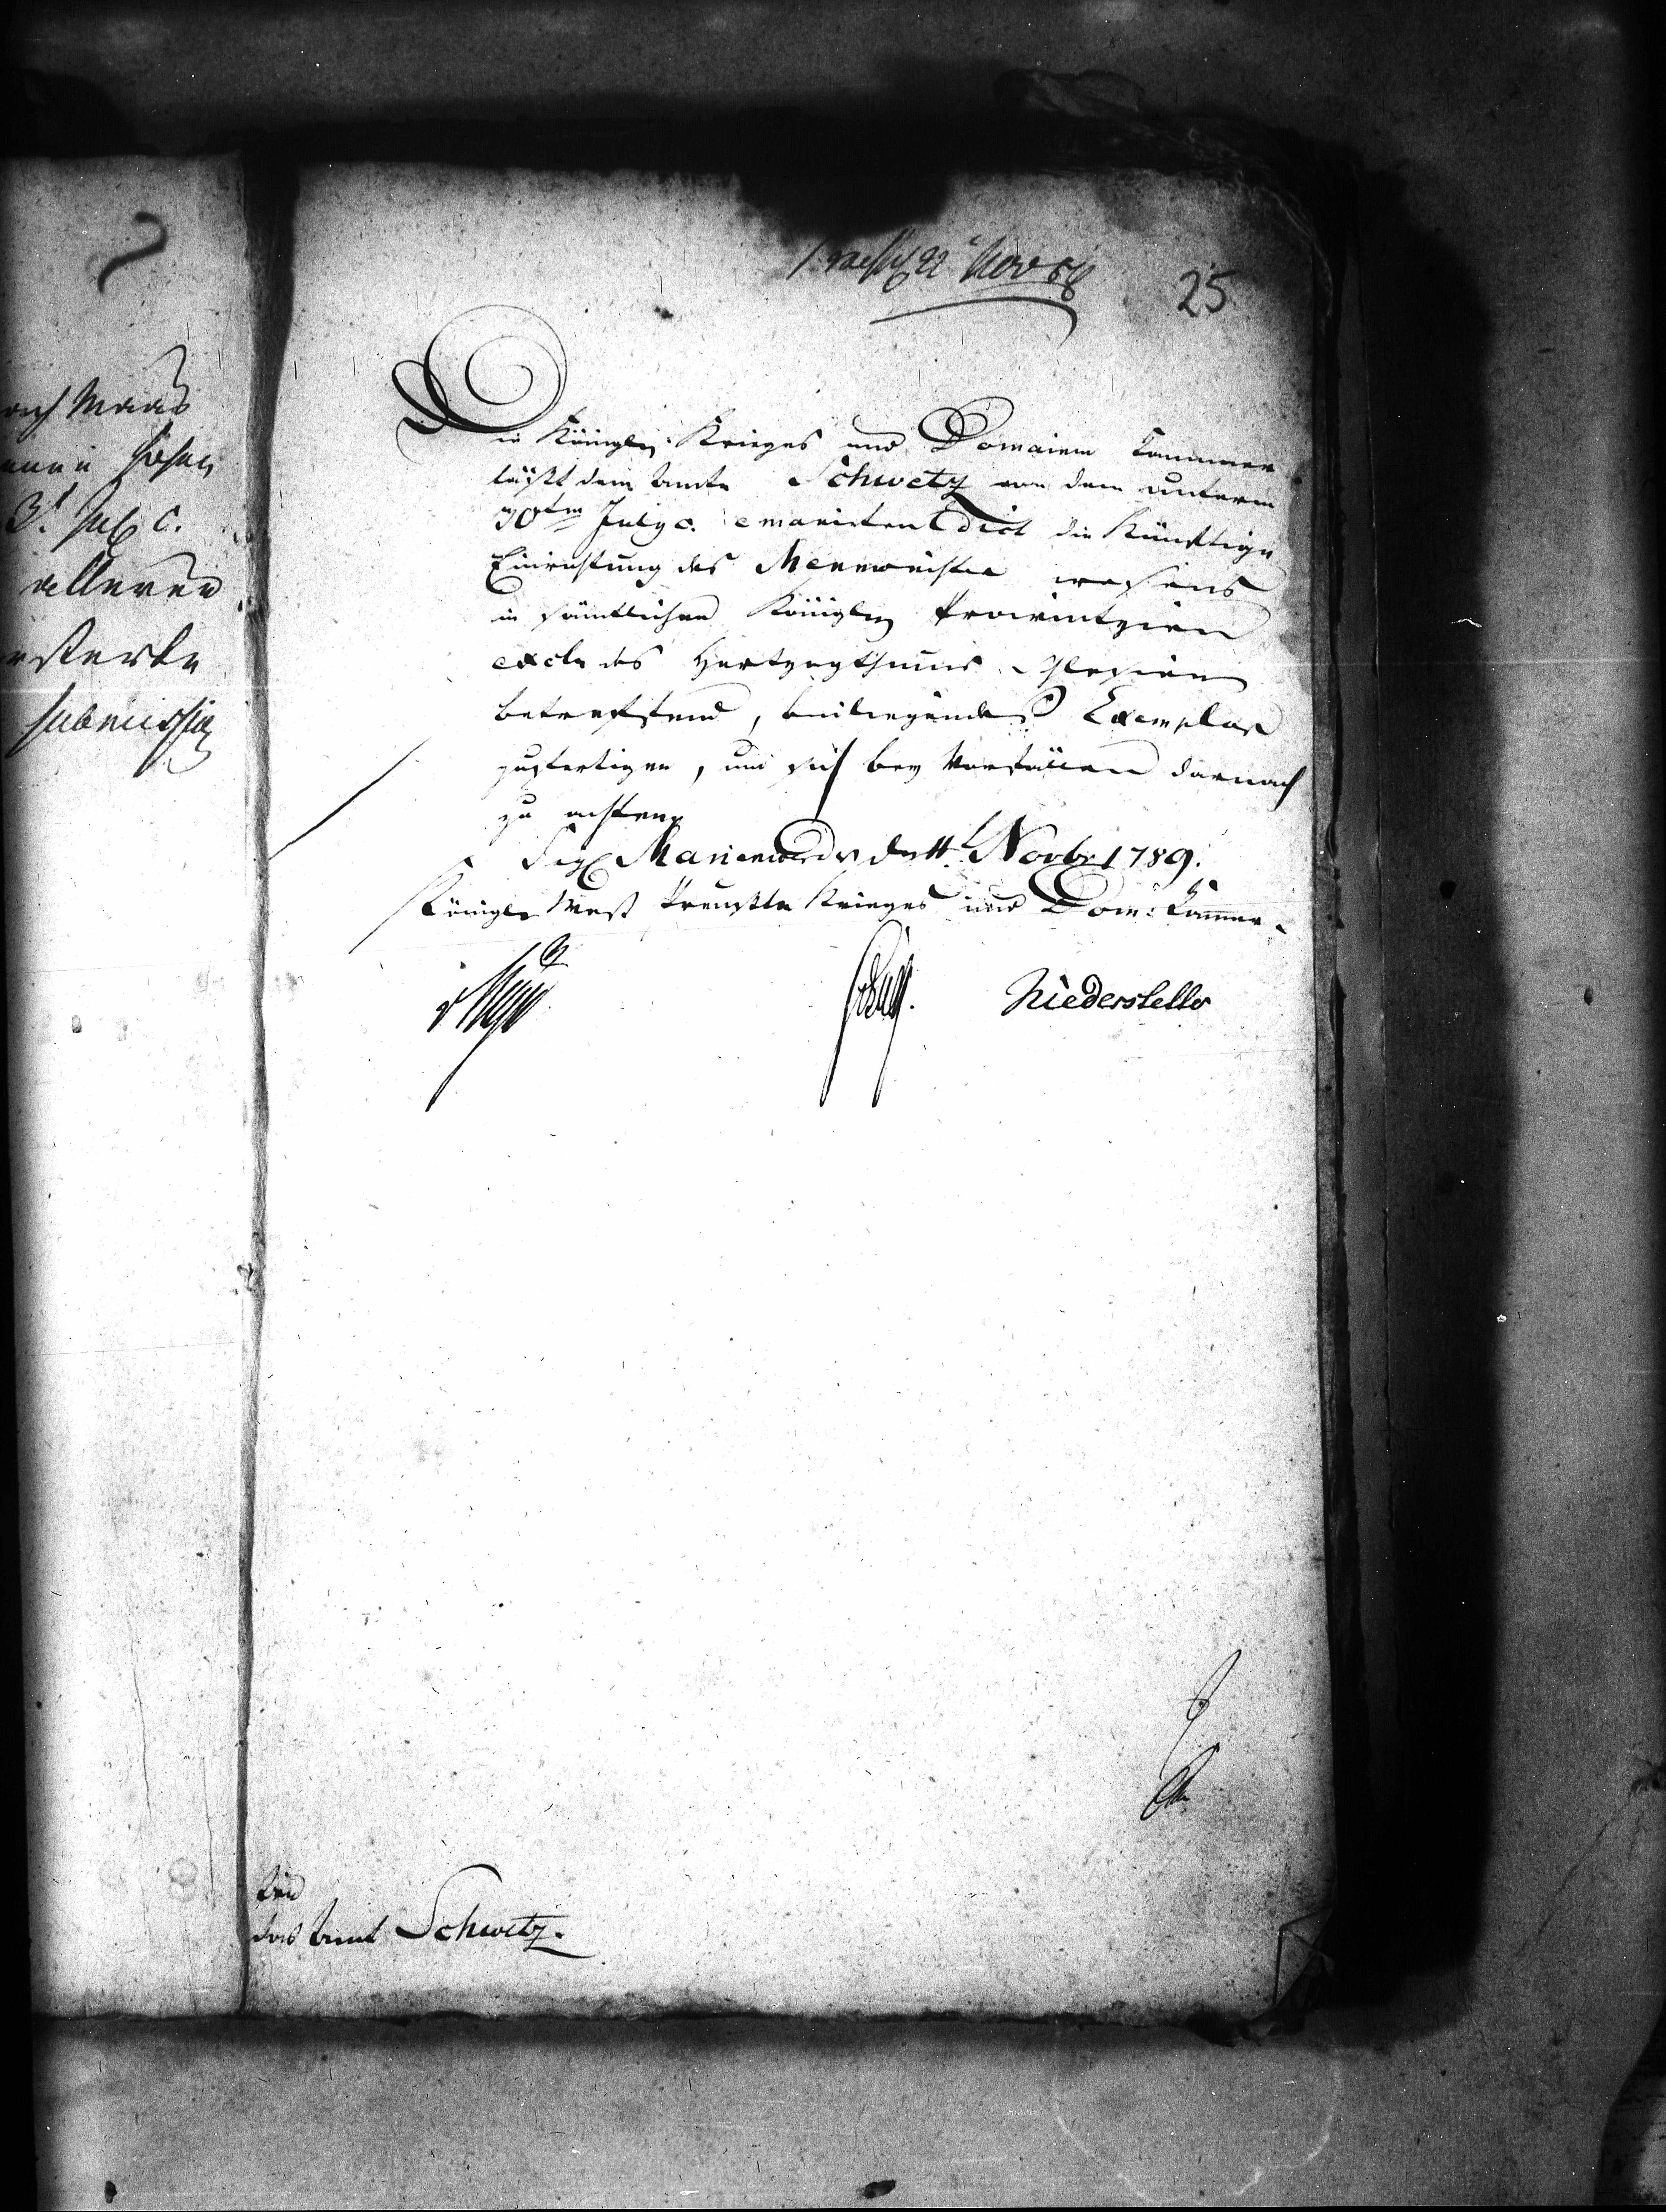 22 Nov
25
Die Königln Krieges und Domainen Cammer
läßt dem Amte Schwetz von dem unterm
30ten July c. emanirten Edict die Künftige
Einrichtung des Mennonisten wesens
in sämtlichen Königln Provintzien
excle des Hertzogthums Schlesien
betreffend, beiliegendes Exemplar
zufertigen, um sich bey Vorfällen darnach
zu achten
Sigl Marienwerder d 11t Novbr 1789.
Königle West Preußsche Krieges und Dom: Cammer
Niederstetter
An
das Amt Schwetz.
nach Maas
hohen
3t July c.
alleren
submission